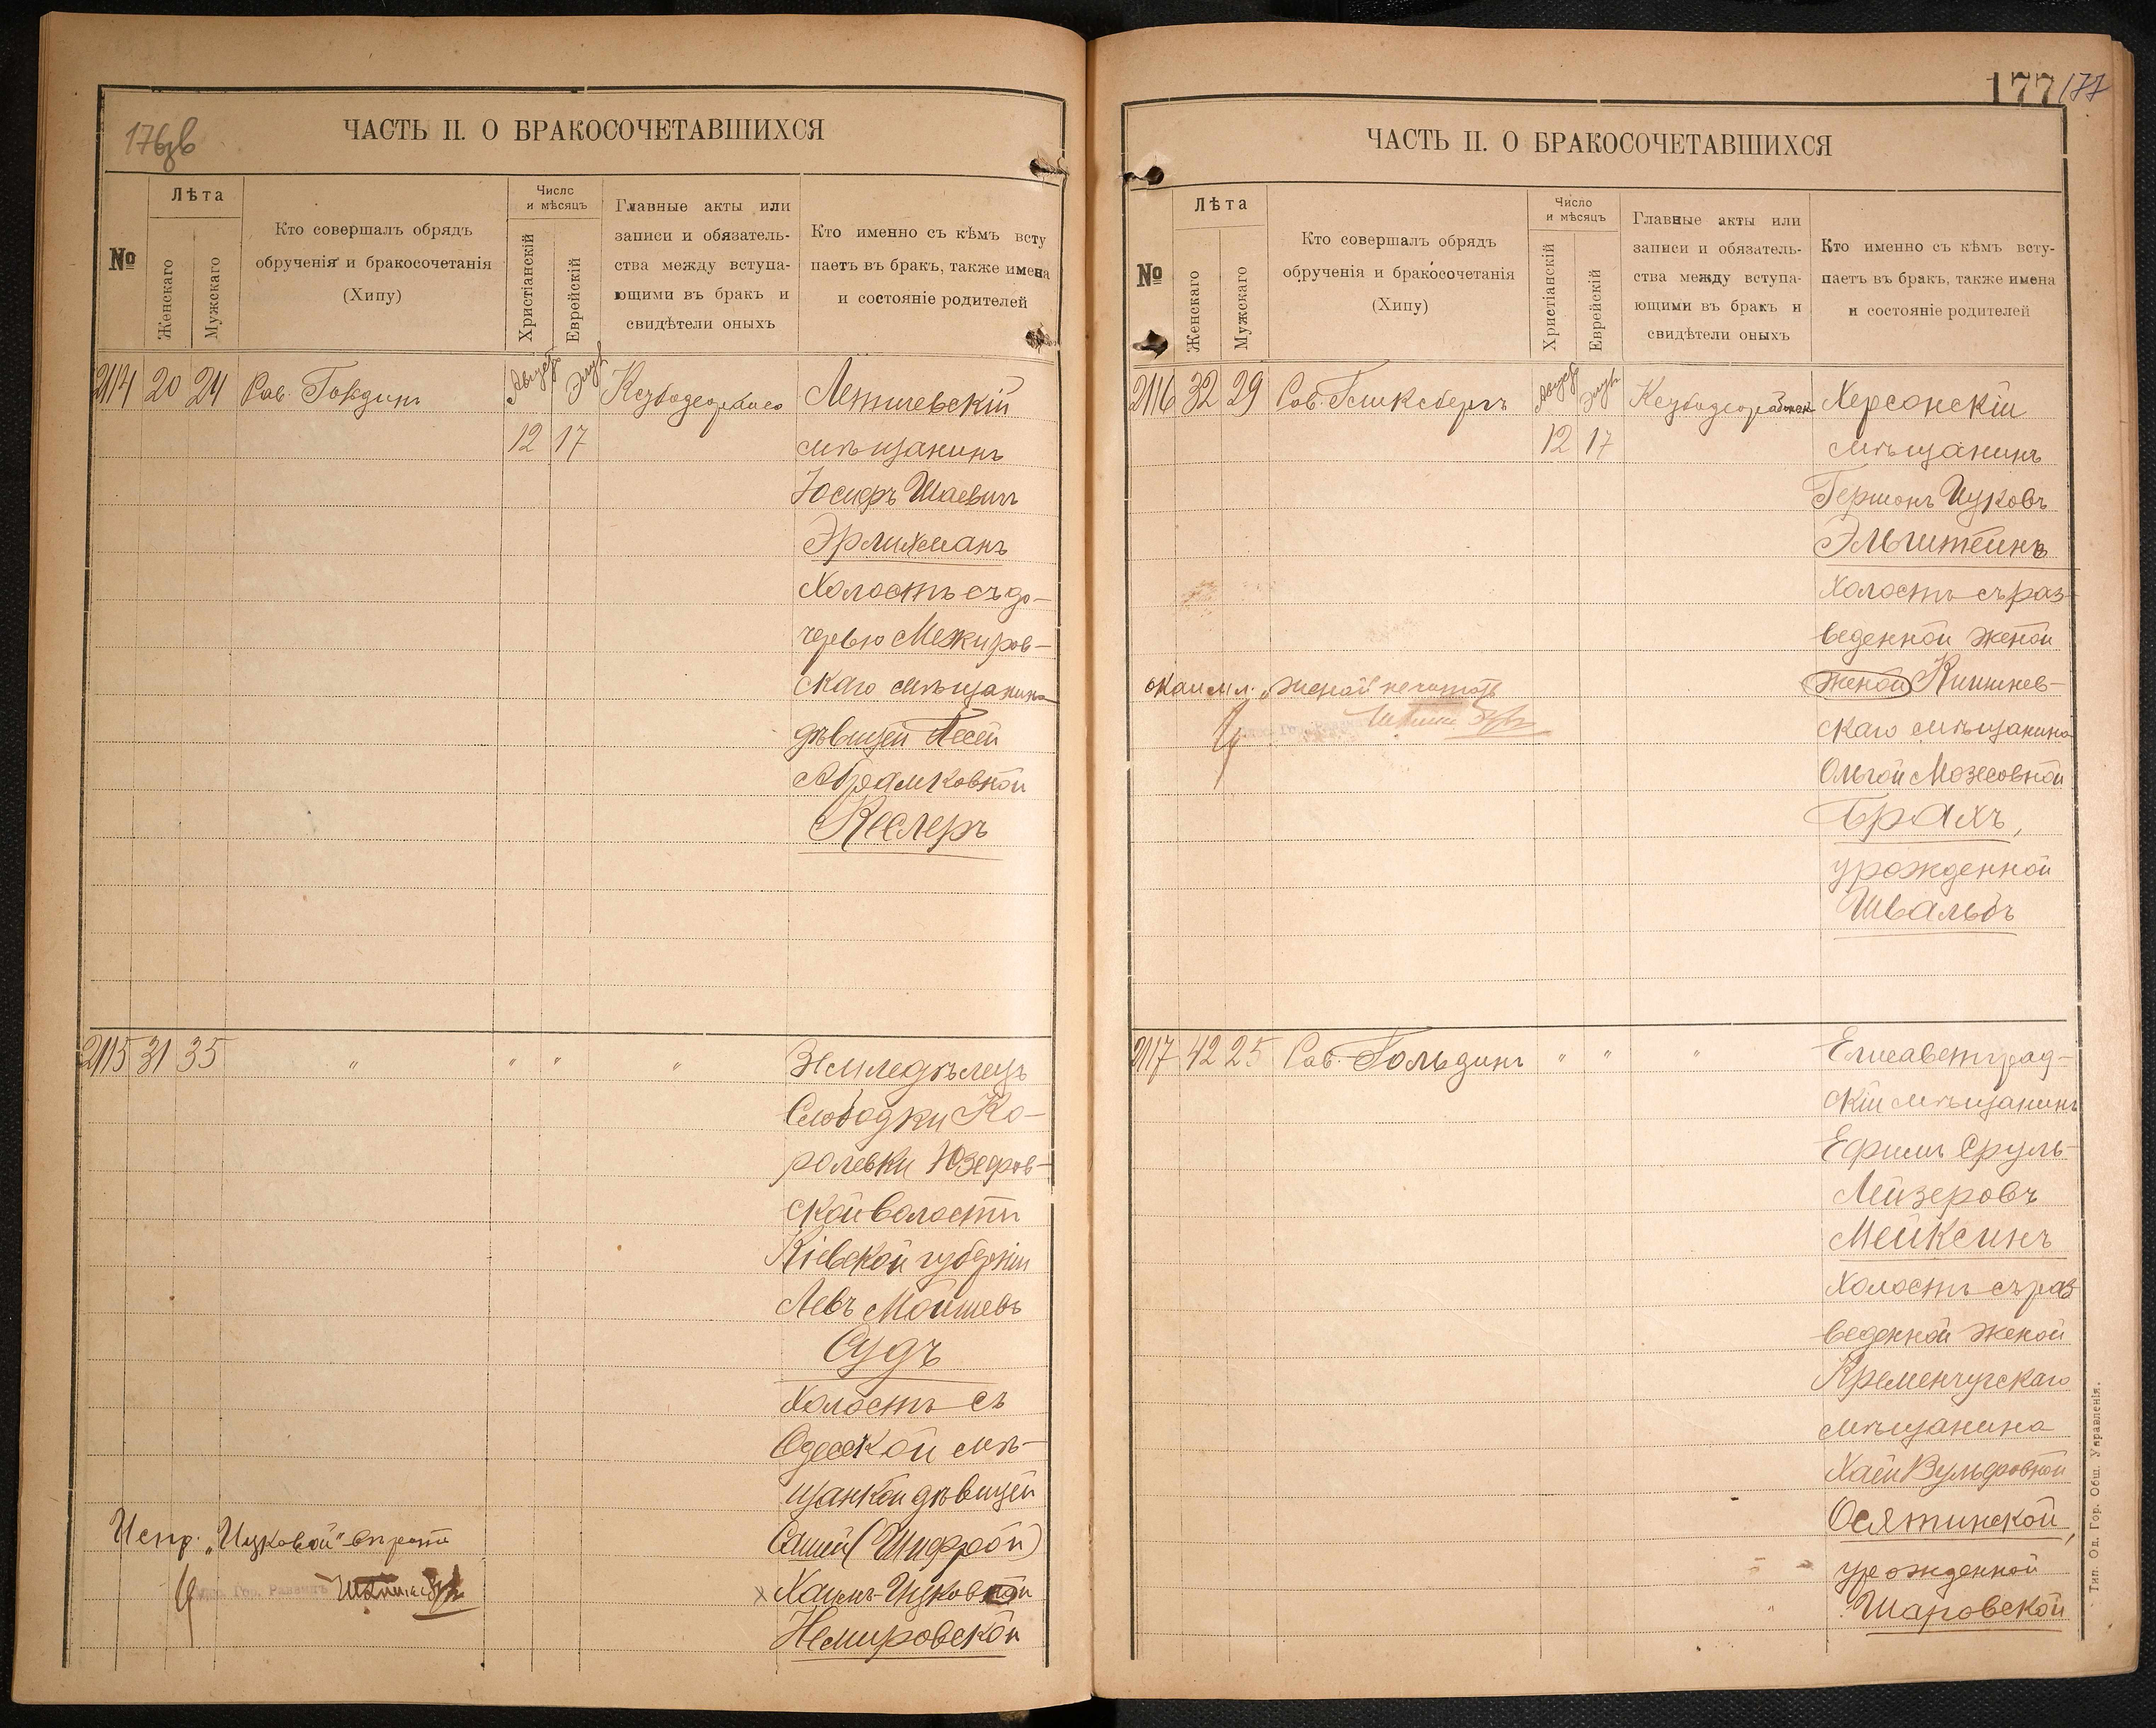 176об
ЧАСТЬ II. О БРАКОСОЧЕТАВШИХСЯ
№
Лѣта
Женскаго
Мужскаго
Кто совершалъ обрядъ
обрученія и бракосочетанія
(Хипу)
Число
и мѣсяцъ
Христіанскій
Еврейскій
Главные акты или
записи и обязатель-
ства между вступа-
ющими въ бракъ и
свидѣтели оныхъ
Кто именно съ кѣмъ всту
паетъ въ бракъ, также имена
и состояніе родителей
2114 20 24 Рав. Летичевскій
12 17 мѣщанинъ
Іосифъ Шаевичъ
Эрлихманъ
Холостъ съ до-
черью Межиров-
скаго мѣщанина
дѣвицей Песей
Абрамковной
Кеслеръ
2115 31 35 " " " " Земледѣлецъ
Слободки Ко-
ролевки Юзефов-
ской волости
Кіевской губерніи
Левъ Мошиевъ
Судъ
Холостъ съ
Одесской мѣ-
щанкой дѣвицей
Саней (Шифрой)
Хаимъ-Ицковной
Немировской
Испр. „Ицковой" вѣрно
Гор. Раввинъ
177 177
ЧАСТЬ II. О БРАКОСОЧЕТАВШИХСЯ
№
Лѣта
Женскаго
Мужскаго
Кто совершалъ обрядъ
обрученія и бракосочетанія
(Хипу)
Число
и мѣсяцъ
Христіанскій
Еврейскій
Главные акты или
записи и обязатель-
ства между вступа-
ющими въ бракъ и
свидѣтели оныхъ
Кто именно съ кѣмъ всту-
паетъ въ бракъ, также имена
и состояніе родителей
2116 32 29 Гликсбергъ Херсонскій
12 17 мѣщанинъ
Гершонъ Ицковъ
Эльштейнъ
Холостъ съ раз-
веденной женой
женой Кишинев-
скаго мѣщанина
Ольгой Мозесовной
Брахъ,
урожденной
Швальбъ
„женой" не читать
2117 42 25 Гольдинъ " " " Елисаветград-
скій мѣщанинъ
Ефимъ Сруль-
Лейзеровъ
Мейксинъ
Холостъ съ раз
веденной женой
Кременчугскаго
мѣщанина
Хаей Вульфовной
Осятинской,
урожденной
Шаровской
Тип. Од. Гор. Общ. Управленія.